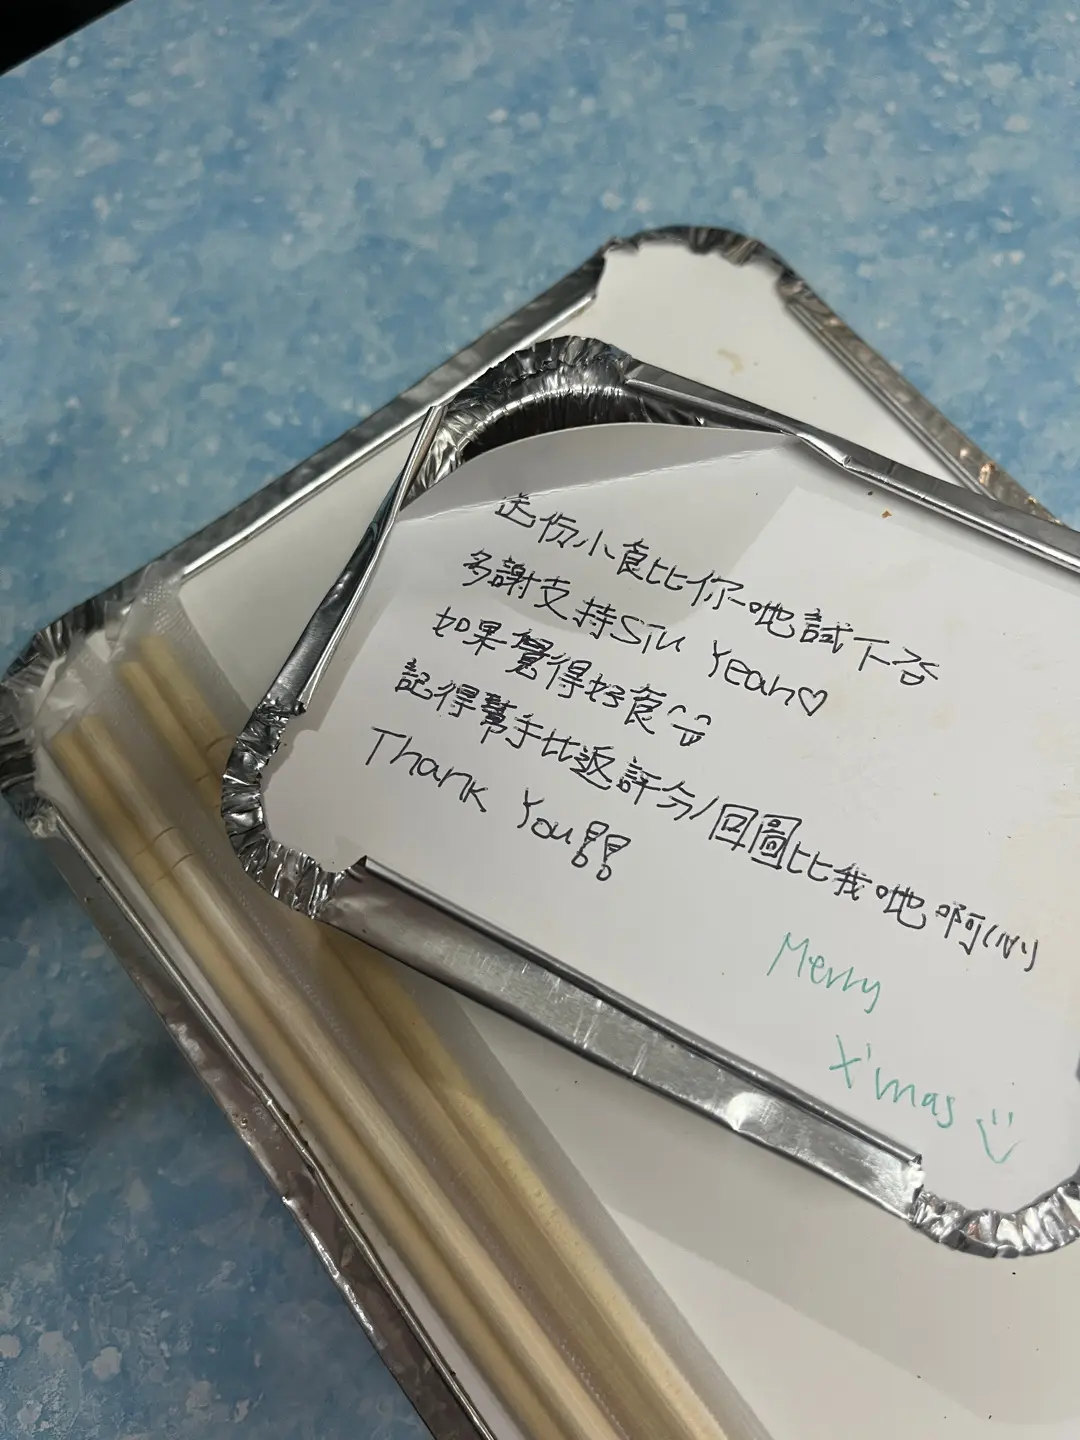 送份小食比你哋試下呀
多謝支持STU Yeah♡
如果覺得好食
記得幫手比返評分/回圖比我哋啊
Thank You!!
Merry
X'mas